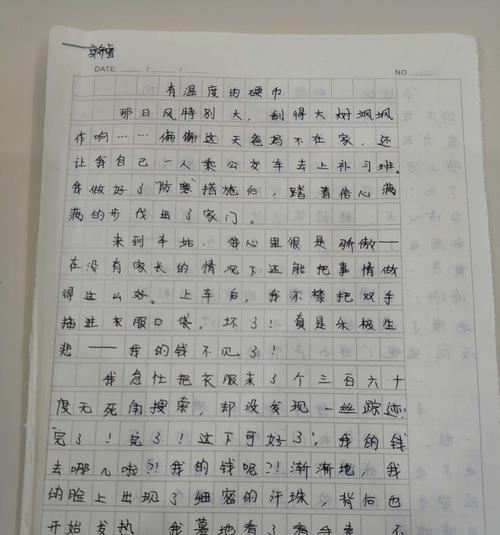 DATE: / /
NO
有温度的硬币
那日风特别大，刮得大树飒飒
作响……偏偏这天爸妈不在家，还
让我自己一人乘公交车去上补习班。
我做好了"防寒"措施后，踏着信心满
满的步伐出了家门。
来到车站，我心里很是骄傲——
在没有家长的情况下还能把事情做
得这么好。上车后，我不禁把双手
插进衣服口袋。坏了！真是乐极生
悲——我的钱不见了！
我急忙把衣服来了个三百六十
度无死角搜索，却没发现一丝踪迹。
"完了！完了！这下可好了，我的钱
去哪儿啦?!我的钱呢?!渐渐地，我
的脸上出现了细密的汗珠，背后也
开始发热。我蓦地看了看手表，不